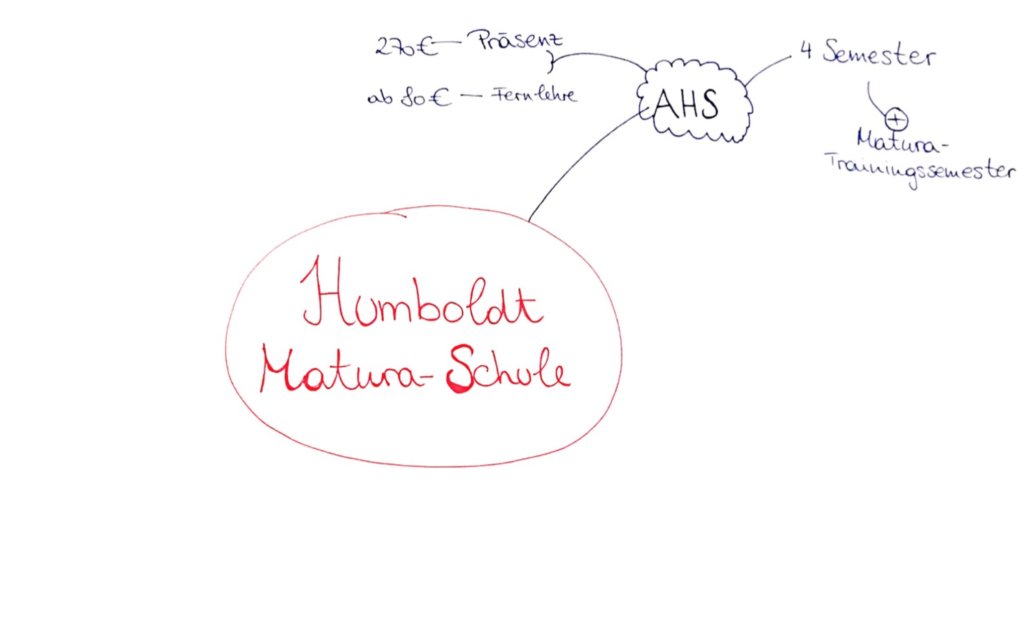 270€ — Präsenz
ab 80€ — Fernlehre
AHS
4 Semester
+
Matura-
Trainingssemester
Humboldt
Matura-Schule